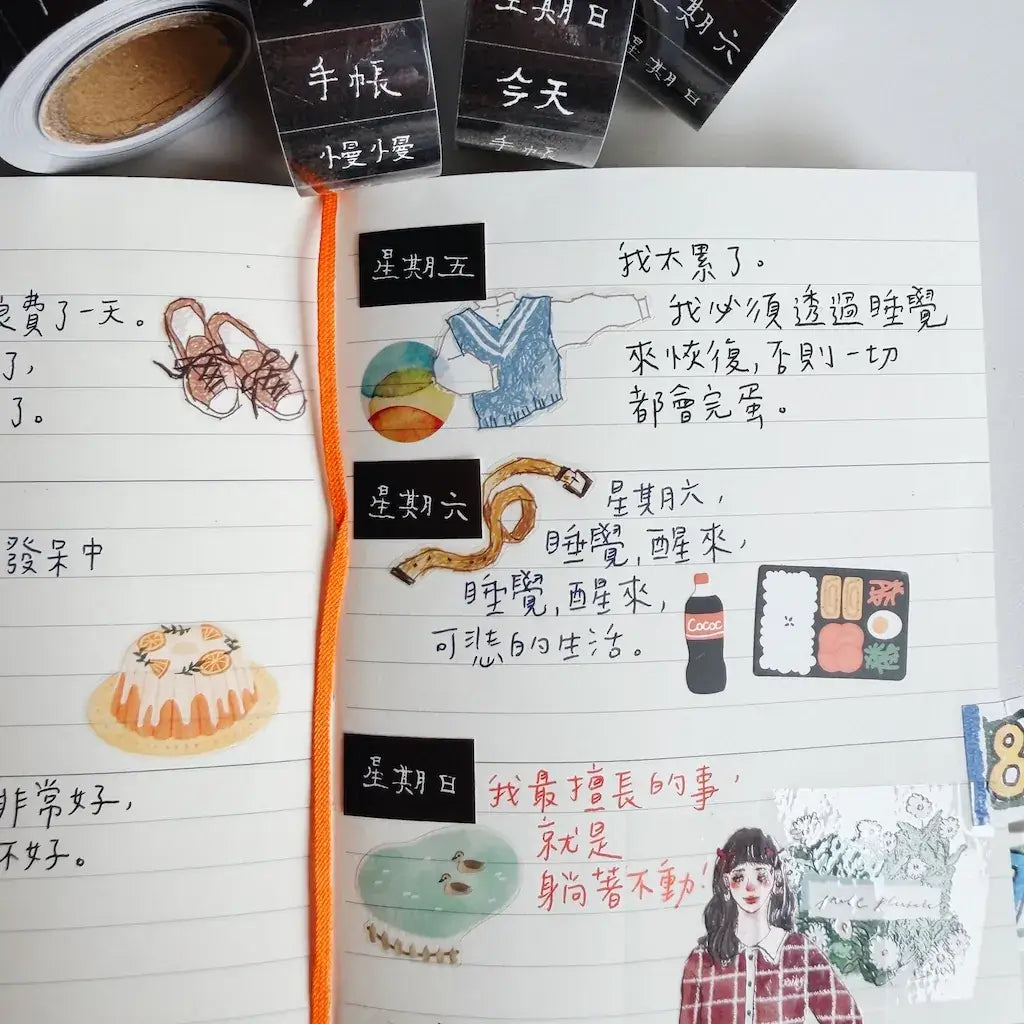 手帳
慢慢
星期日
今天
手帐
星期六
星期日
費了一天。
了,
了。
發呆中
非常好,
不好。
星期五
我太累了。
我必須透過睡覺
來恢復,否則一切
都會完蛋。
星期六
星期六,
睡覺,醒來,
睡覺,醒來,
可悲的生活。
Cococ
星期日
我最擅長的事,
就是
躺著不動!
8